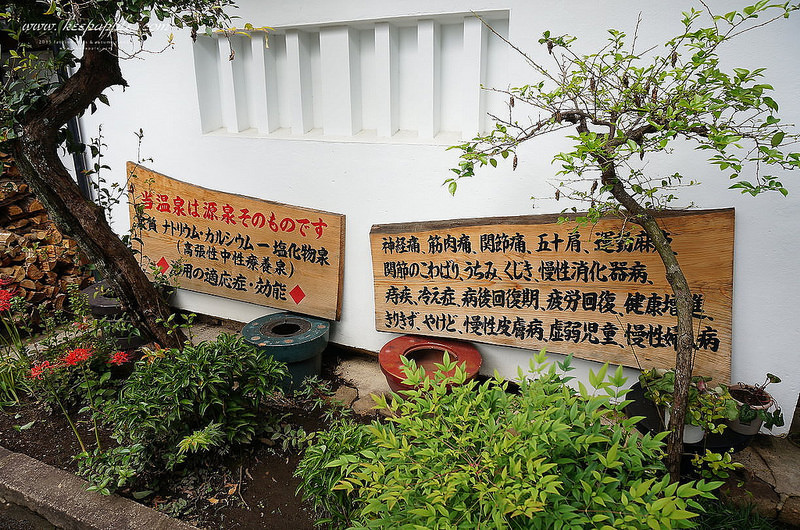 当温泉は源泉そのものです
泉質 ナトリウム・カルシウムー塩化物泉
(高張性中性療養泉)
用の適応症・効能
神経痛、筋肉痛、関節痛、五十肩、運動麻痺
関節のこわばり、うちみ、くじき、慢性消化器病、
痔疾、冷え症、病後回復期、疲労回復、健康増進、
きりきず、やけど、慢性皮膚病、虚弱児童、慢性婦 病
www.kespapple.com